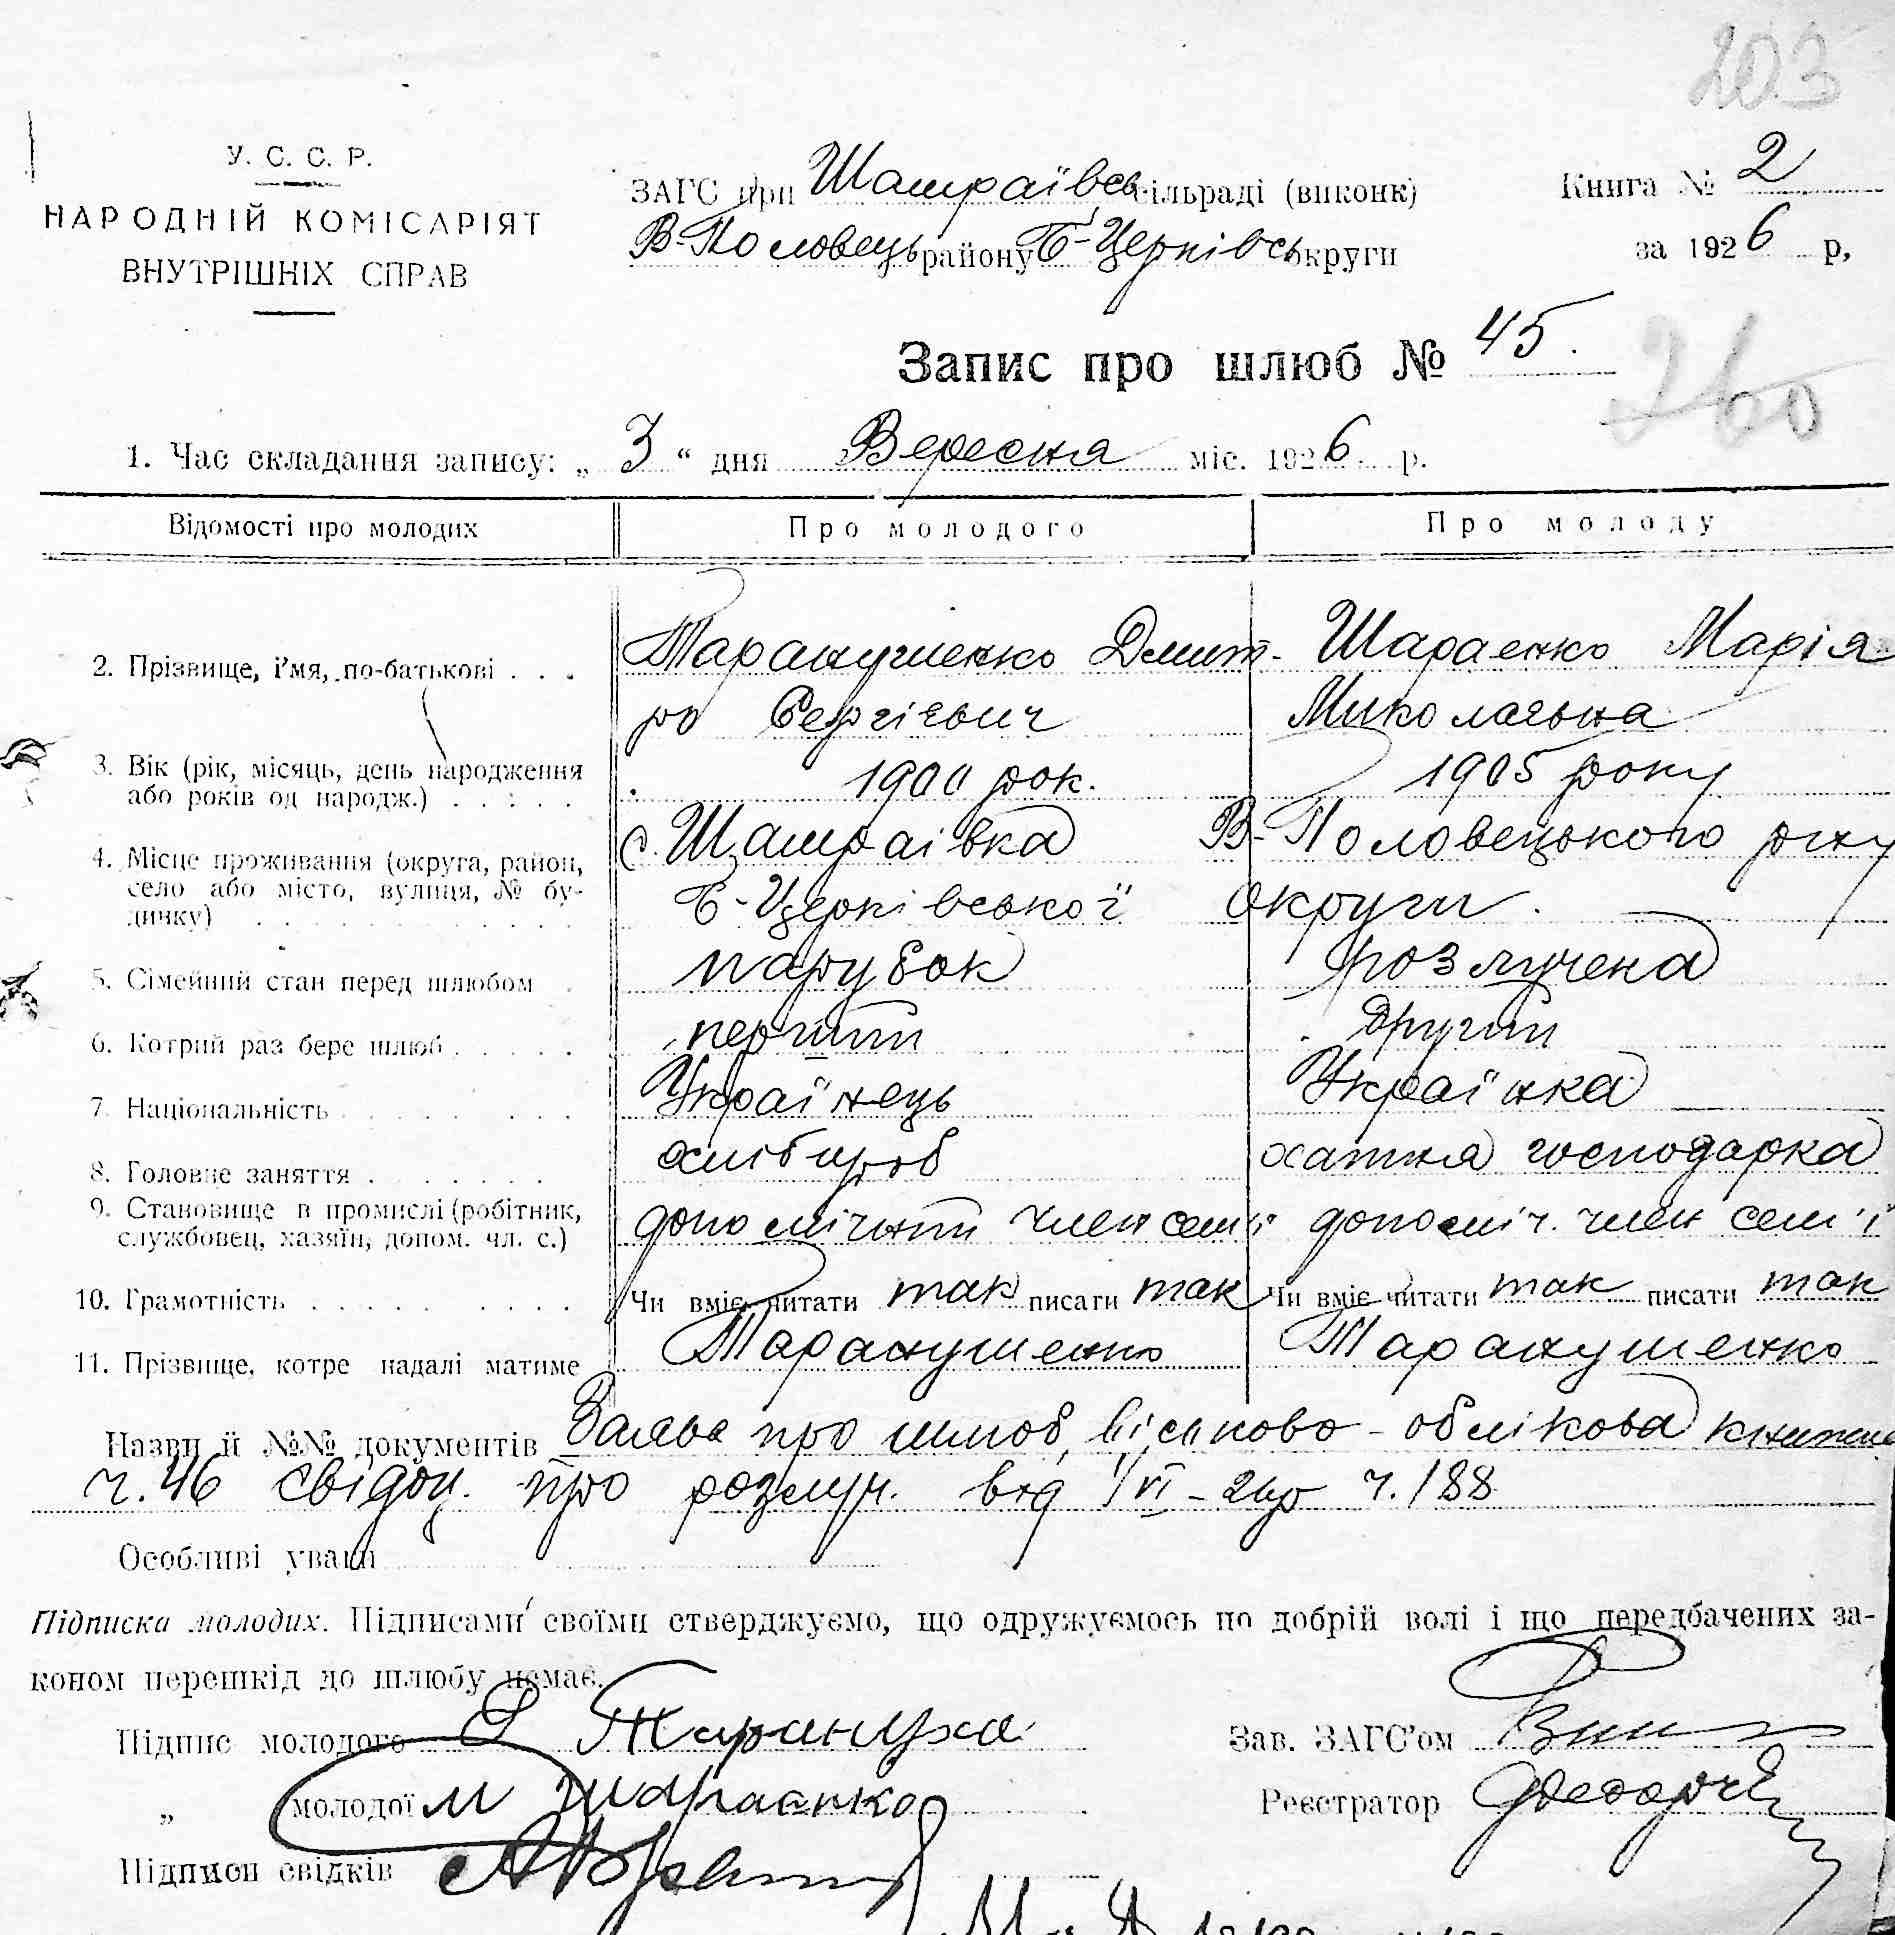 203
У. С. С. Р.
НАРОДНІЙ КОМІСАРІЯТ
ВНУТРІШНІХ СПРАВ
ЗАГС при Шамраївсь сільраді (виконк)
В-Половець району Б-Церківсь округи
Книга № 2
за 1926 р,
Запис про шлюб № 45.
260
1. Час складання запису: „ 3 “ дня Вересня міс. 1926 р.
Відомості про молодих Про молодого Про молоду
2. Прізвище, і'мя, по-батькові . . . Таранушенко Дмит- Шараенко Марія
ро Сергієвич Миколаєвна
3. Вік (рік, місяць, день народження
або років од народж.) . . . . . 1900 рок. 1905 року
4. Місце проживання (округа, район,
село або місто, вулиця, № бу-
динку) с. Шамраівка В-Половецького р-ну
Б-Церківської округи.
5. Сімейний стан перед шлюбом парубок розлучена
6. Котрий раз бере шлюб . . . . . перший другий
7. Національність . . . . . . . Українець Українка
8. Головне заняття . . . . . . . хлібороб хатня господарка
9. Становище в промислі (робітник,
службовец, хазяїн, допом. чл. с.) допомічний член сем'ї допоміч. член сем'ї
10. Грамотність . . . . . . . . . Чи вміє читати так писати так Чи вміє читати так писати так
11. Прізвище, котре надалі матиме Таранушенко Таранушенко
Назви й №№ документів Заява про шлюб, військово-облікова книжка
ч. 46 свідоц. про розлуч. від 1/VI-26р ч. 188
Особливі уваги
Підписка молодих. Підписами своїми стверджуємо, що одружуємось по добрій волі і що передбачених за-
коном перешкід до шлюбу немає.
Підпис молодого
Зав. ЗАГС'ом
„ молодої М Шараенко
Реєстратор
Підписи свідків